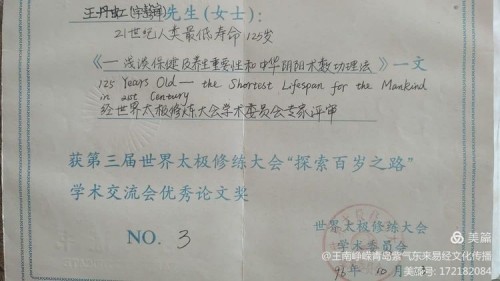 王丹虹(宇静峰)先生(女士):
21世纪人类最低寿命125岁
《一浅谈保健及养生重要性和中华阴阳术数功理法》一文
125 Years Old — the Shortest Lifespan for the Mankind
in 21st Century
经世界太极修炼大会学术委员会专家评审
获第三届世界太极修练大会“探索百岁之路”
学术交流会优秀论文奖
NO. 3
世界太极修练大会
学术委员会
96年10月
美篇
@王南峥嵘青岛紫气东来易经文化传播
美篇号: 172182084